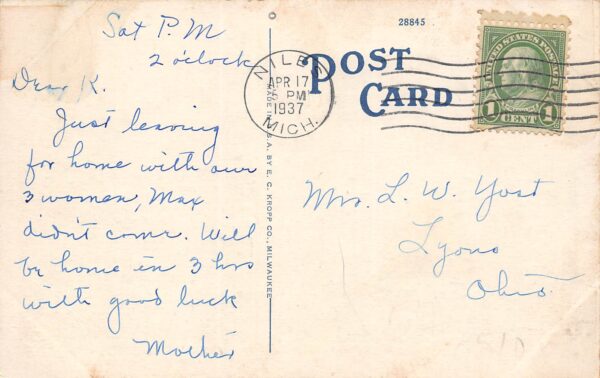 Sat P.M
2 o'clock
Dear K.
Just leaving
for home with our
3 women, Max
didn't come. Will
be home in 3 hrs
with good luck
Mother
28845
POST
CARD
NILES
APR 17
5 PM
1937
MICH.
UNITED STATES POSTAGE
1 CENT 1
MADE IN U.S.A. BY E. C. KROPP CO., MILWAUKEE
Mrs. L. W. Yost
Lyons
Ohio.